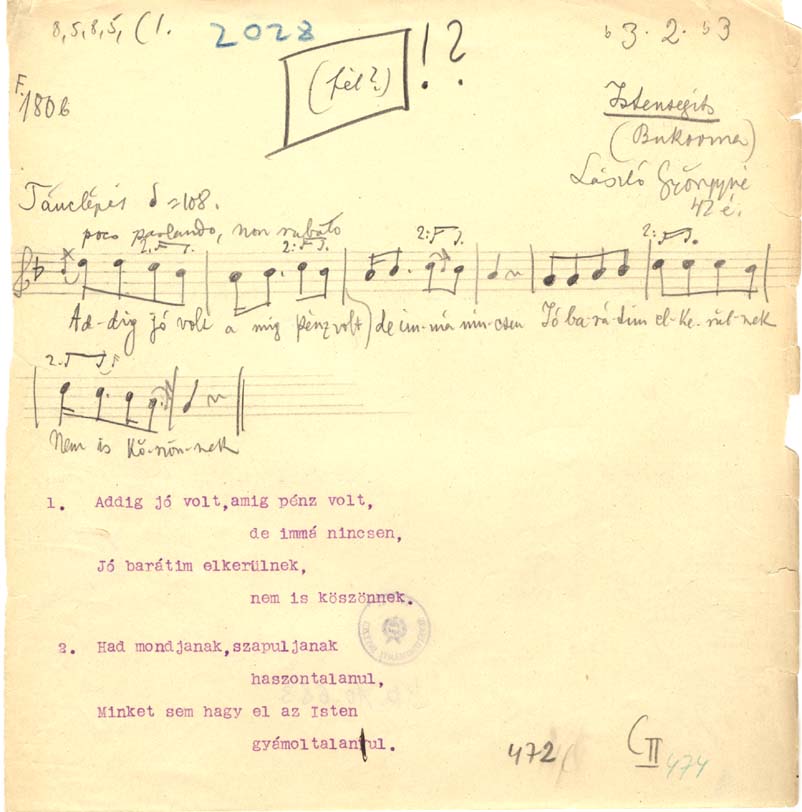 8, 5, 8, 5, (1.
2028
(fél?)
!?
b3. 2. b3
F.
180b
Istensegíts
(Bukovina)
László Györgyné
42 é.
Tánclépés = 108.
poco parlando, non rubato
2. 2. 2. 2.
Ad-dig jó volt a míg pénz volt) de im-má nin-csen Jó ba-rá-tim el-ke-rül-nek
2.
Nem is kö-szön-nek
1. Addig jó volt,amig pénz volt,
de immá nincsen,
Jó barátim elkerülnek,
nem is köszönnek.
2. Had mondjanak,szapuljanak
haszontalanul,
Minket sem hagy el az Isten
gyámoltalanul.
472
C II 474